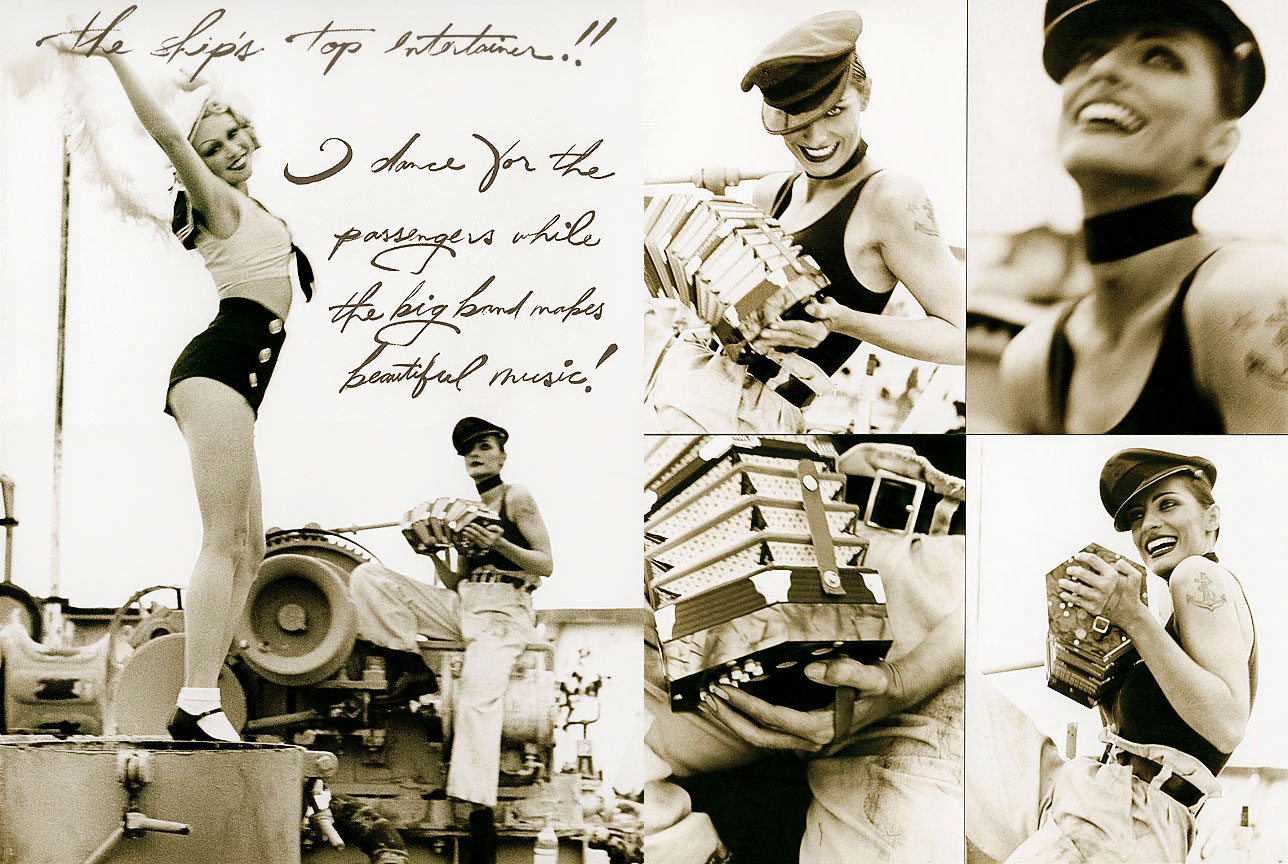 the ship's top entertainer!!
I dance for the
passengers while
the big band makes
beautiful music!